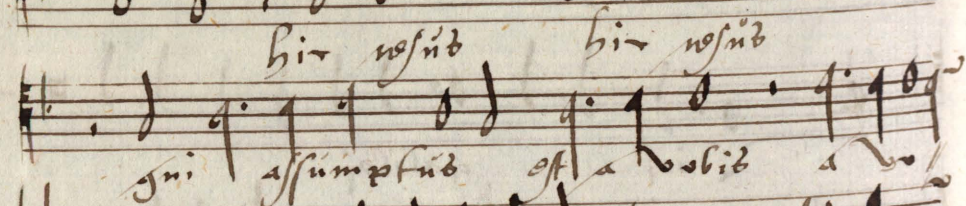 hic iesus hic iesus
qui assumptus est a vobis a vo